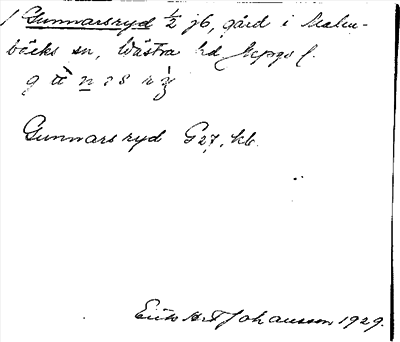 Gunnarsryd ½ j6, gård i Malm-
bäcks sn, Västra hd Jkpgs l.
Gunnarsryd G27, kb.
Erik H:t Johansson 1929.